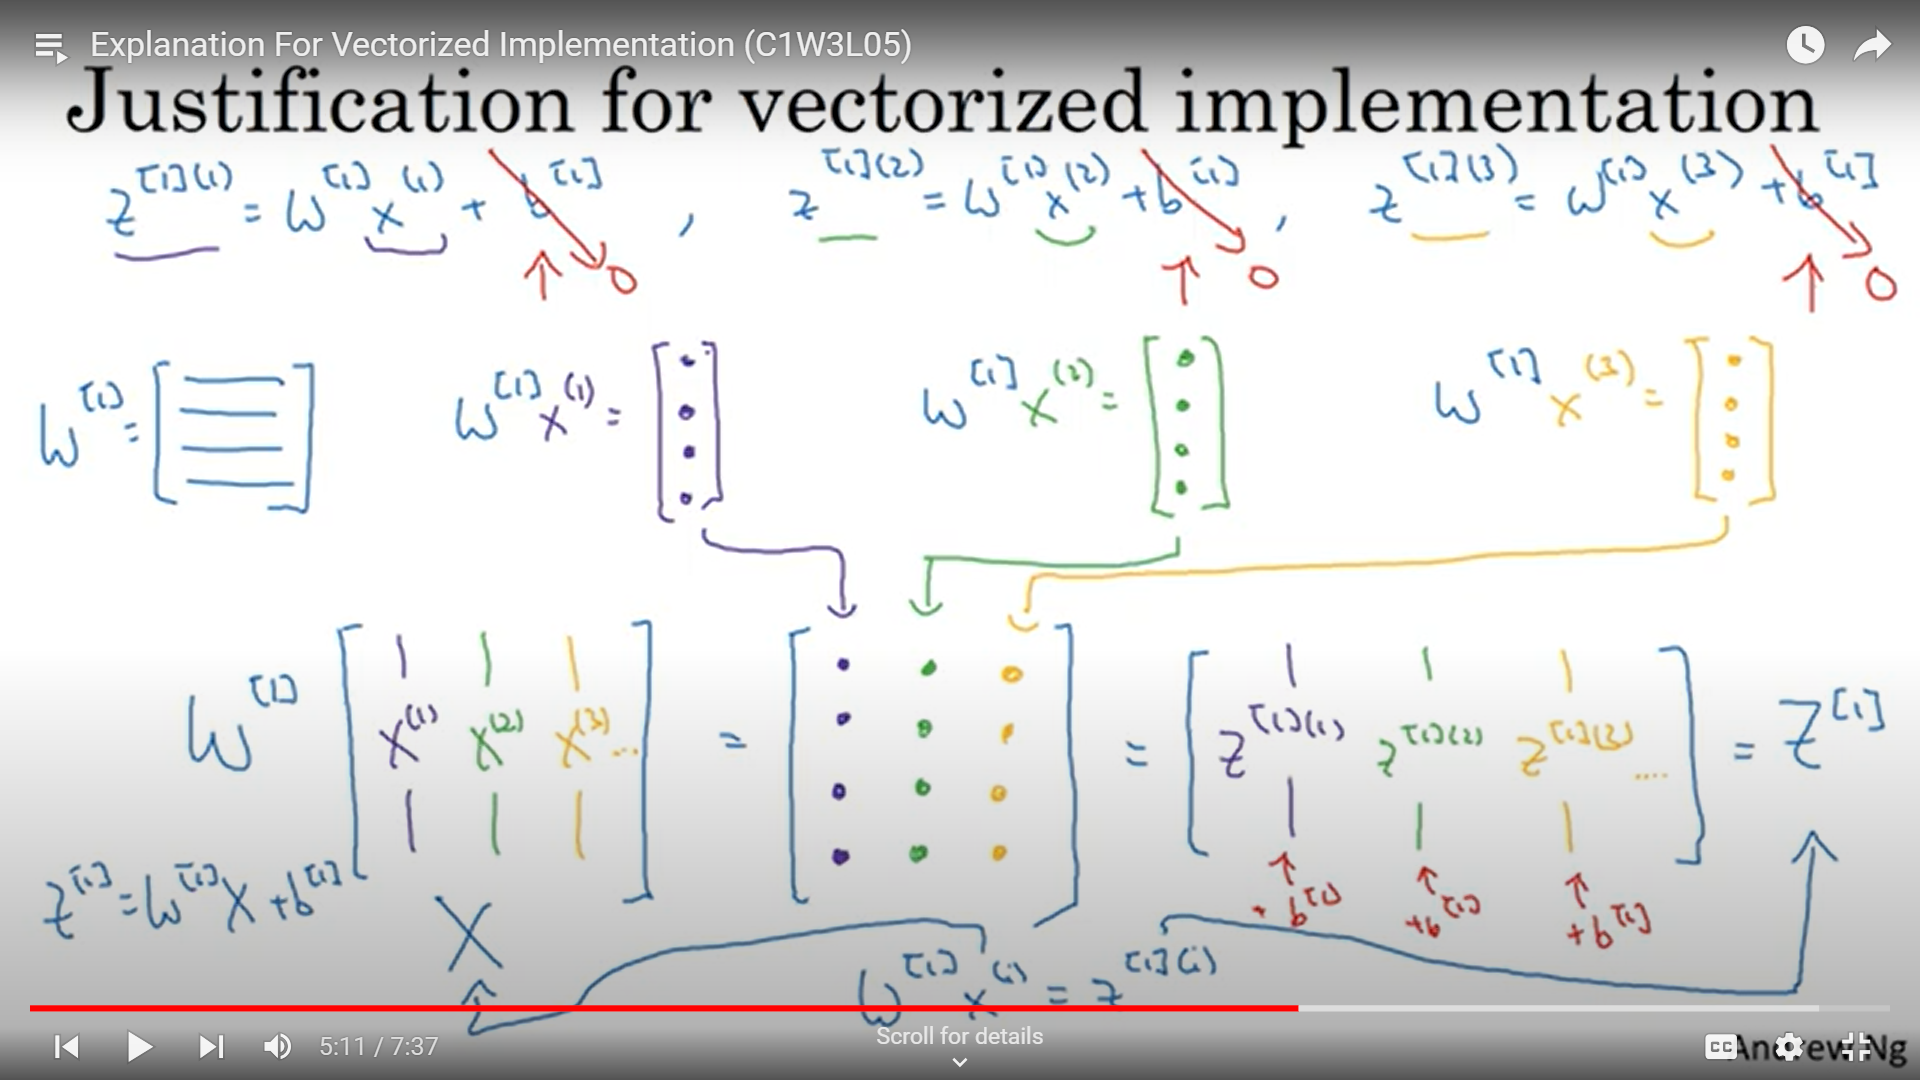 Explanation For Vectorized Implementation (C1W3L05)
Justification for vectorized implementation
z^[1](1) = W^[1] x^(1) + b^[1] , z^[1](2) = W^[1] x^(2) + b^[1] , z^[1](3) = W^[1] x^(3) + b^[1]
↑ 0 ↑ 0 ↑ 0
W^[1] = [ ] W^[1] x^(1) = [ ] W^[1] x^(2) = [ ] W^[1] x^(3) = [ ]
W^[1] [ x^(1) x^(2) x^(3) ... ] = [ ] = [ z^[1](1) z^[1](2) z^[1](3) .... ] = Z^[1]
+ b^[1] + b^[1] + b^[1]
Z^[1] = W^[1] X + b^[1]
X
W^[1] x^(i) = z^[1](i)
Scroll for details
5:11 / 7:37
CC
Andrew Ng